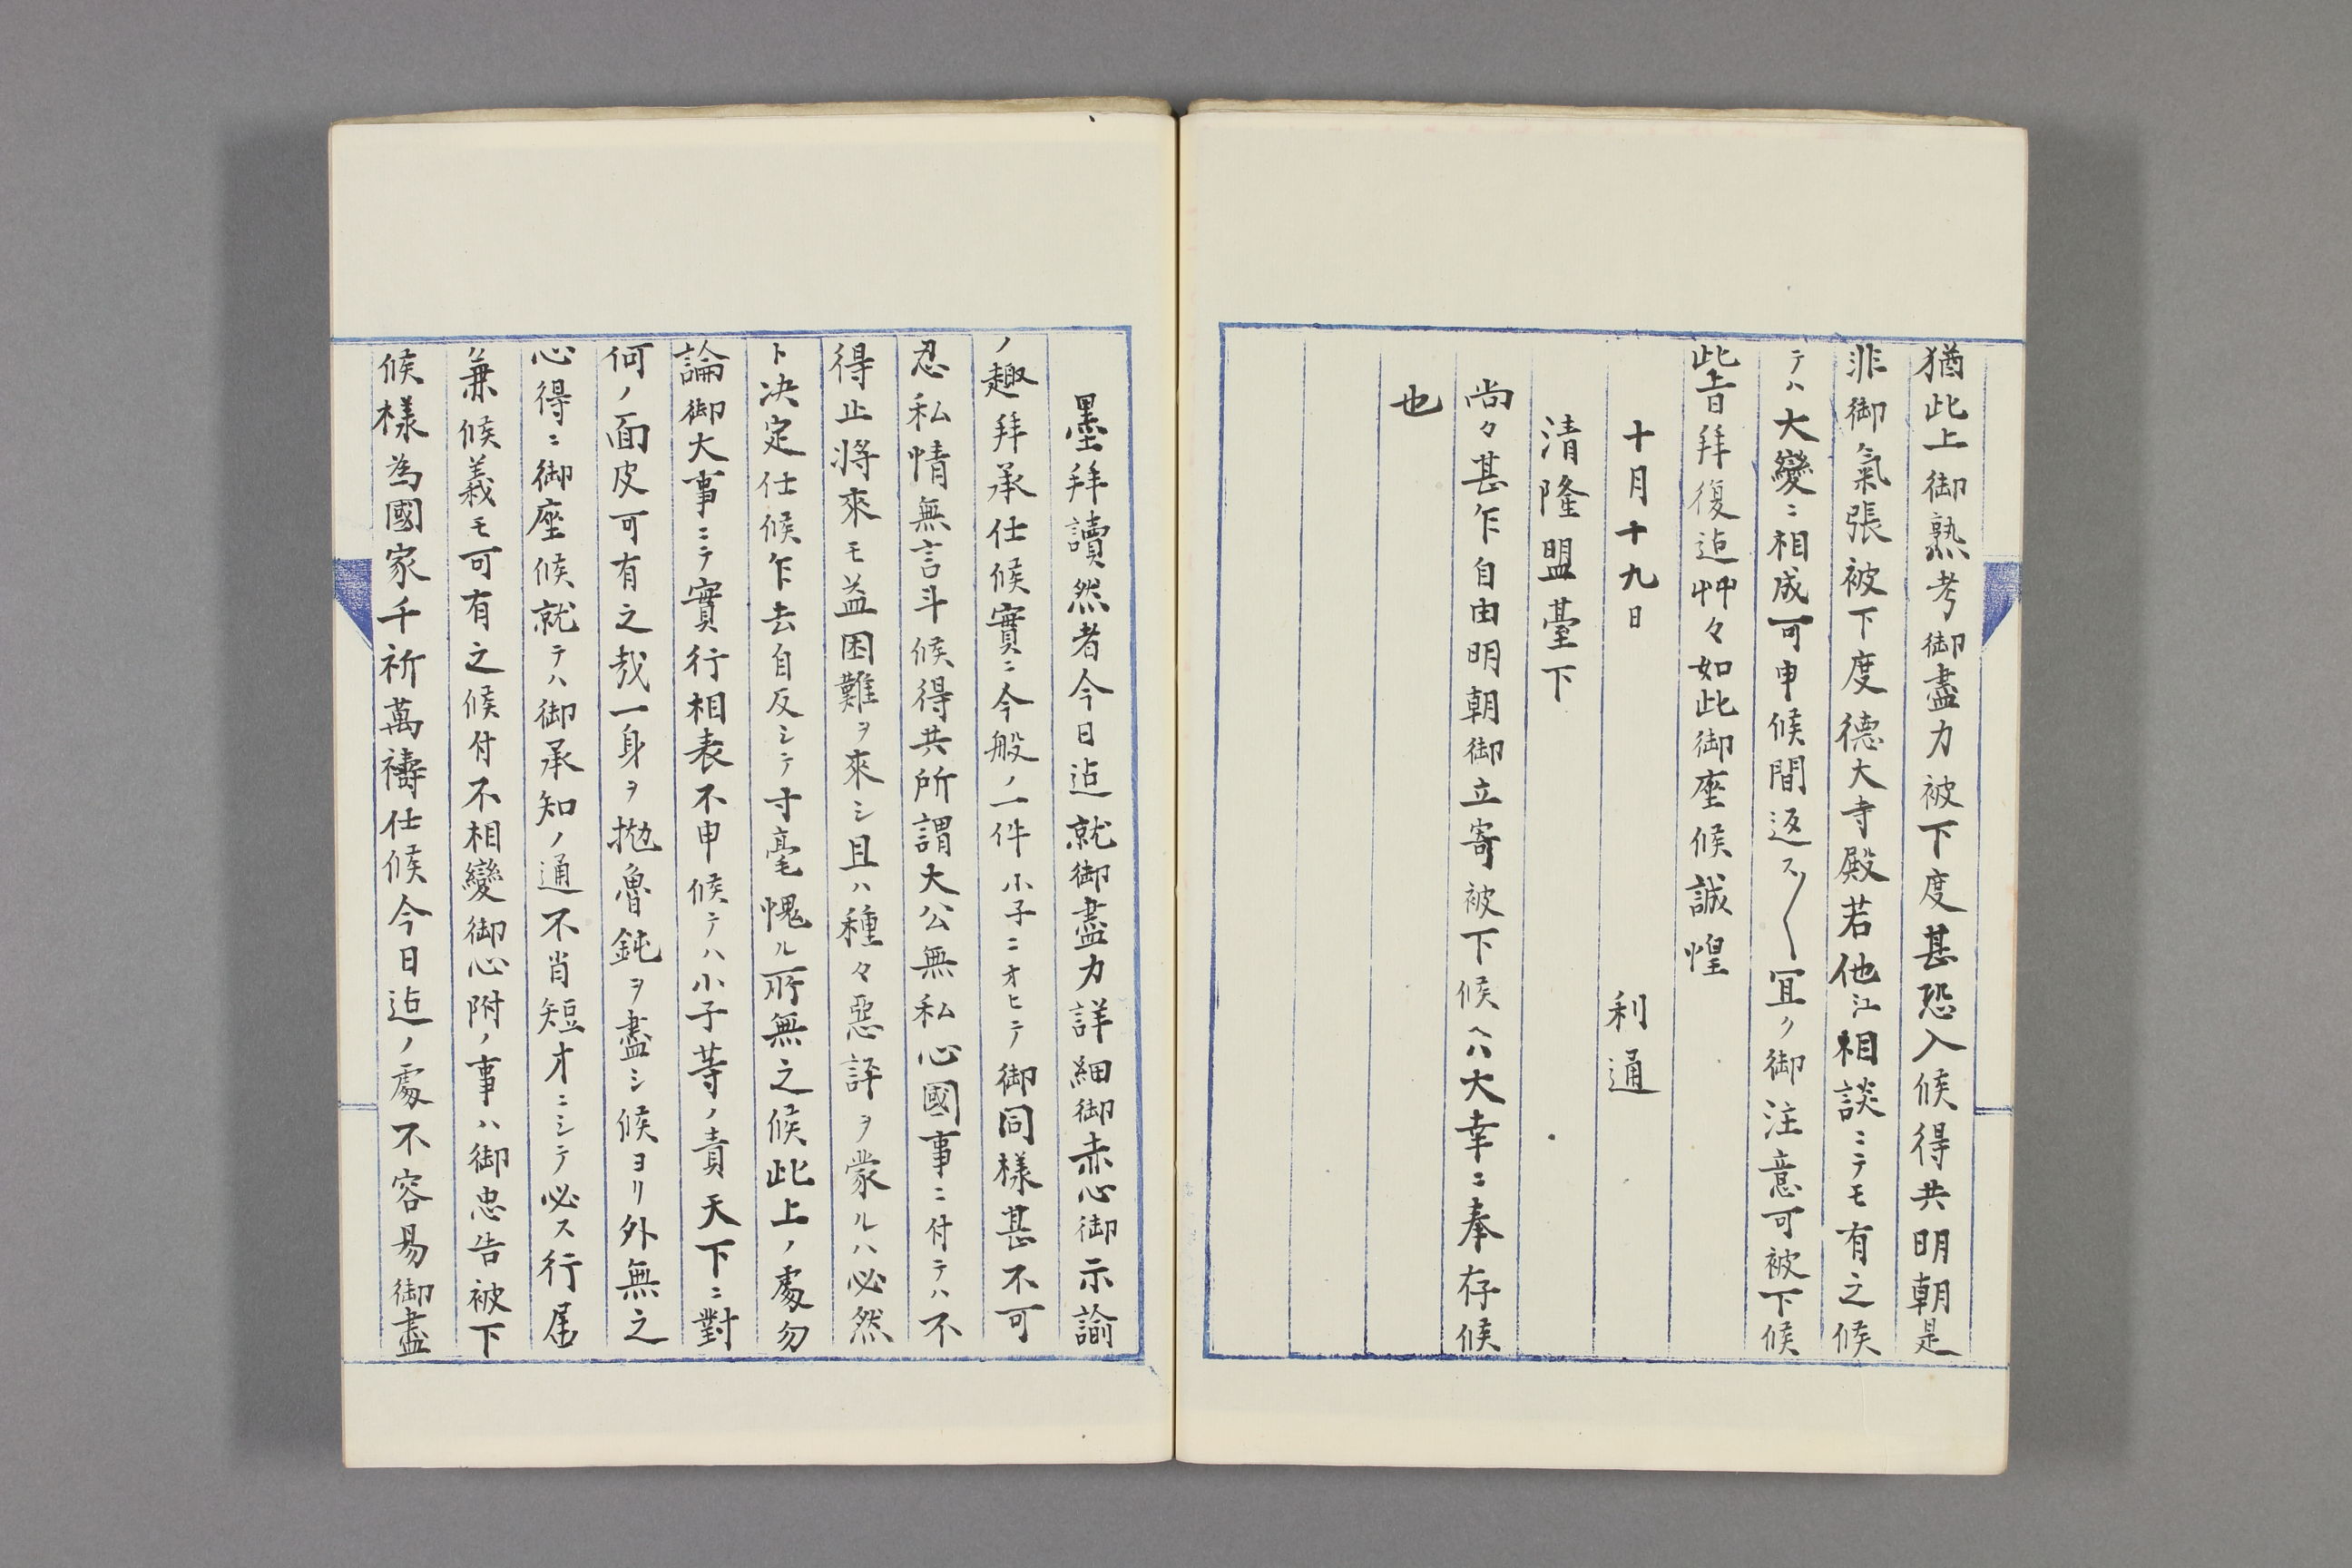 猶此上御熟考御盡力被下度甚恐入候得共明朝是
非御氣張被下度德大寺殿若他江相談ニテモ有之候
テハ大變ニ相成可申候間返ス〱冝ク御注意可被下候
此旨拜復迠艸々如此御座候誠惶
十月十九日
利通
清隆盟臺下
尚々甚乍自由明朝御立寄被下候ヘハ大幸ニ奉存候
也
墨拜讀然者今日迠就御盡力詳細御赤心御示諭
ノ趣拜承仕候實ニ今般ノ一件小子ニオヒテ御同樣甚不可
忍私情無言斗候得共所謂大公無私心國事ニ付テハ不
得止將來モ益困難ヲ來シ且ハ種々惡評ヲ蒙ルハ必然
ト决定仕候乍去自反シテ寸毫愧ル所無之候此上ノ處勿
論御大事ニテ實行相表不申候テハ小子等ノ責天下ニ對
何ノ面皮可有之哉一身ヲ拋魯鈍ヲ盡シ候ヨリ外無之
心得ニ御座候就テハ御承知ノ通不肖短才ニシテ必ス行届
兼候義モ可有之候付不相變御心附ノ事ハ御忠告被下
候樣為國家千祈萬禱仕候今日迠ノ處不容易御盡